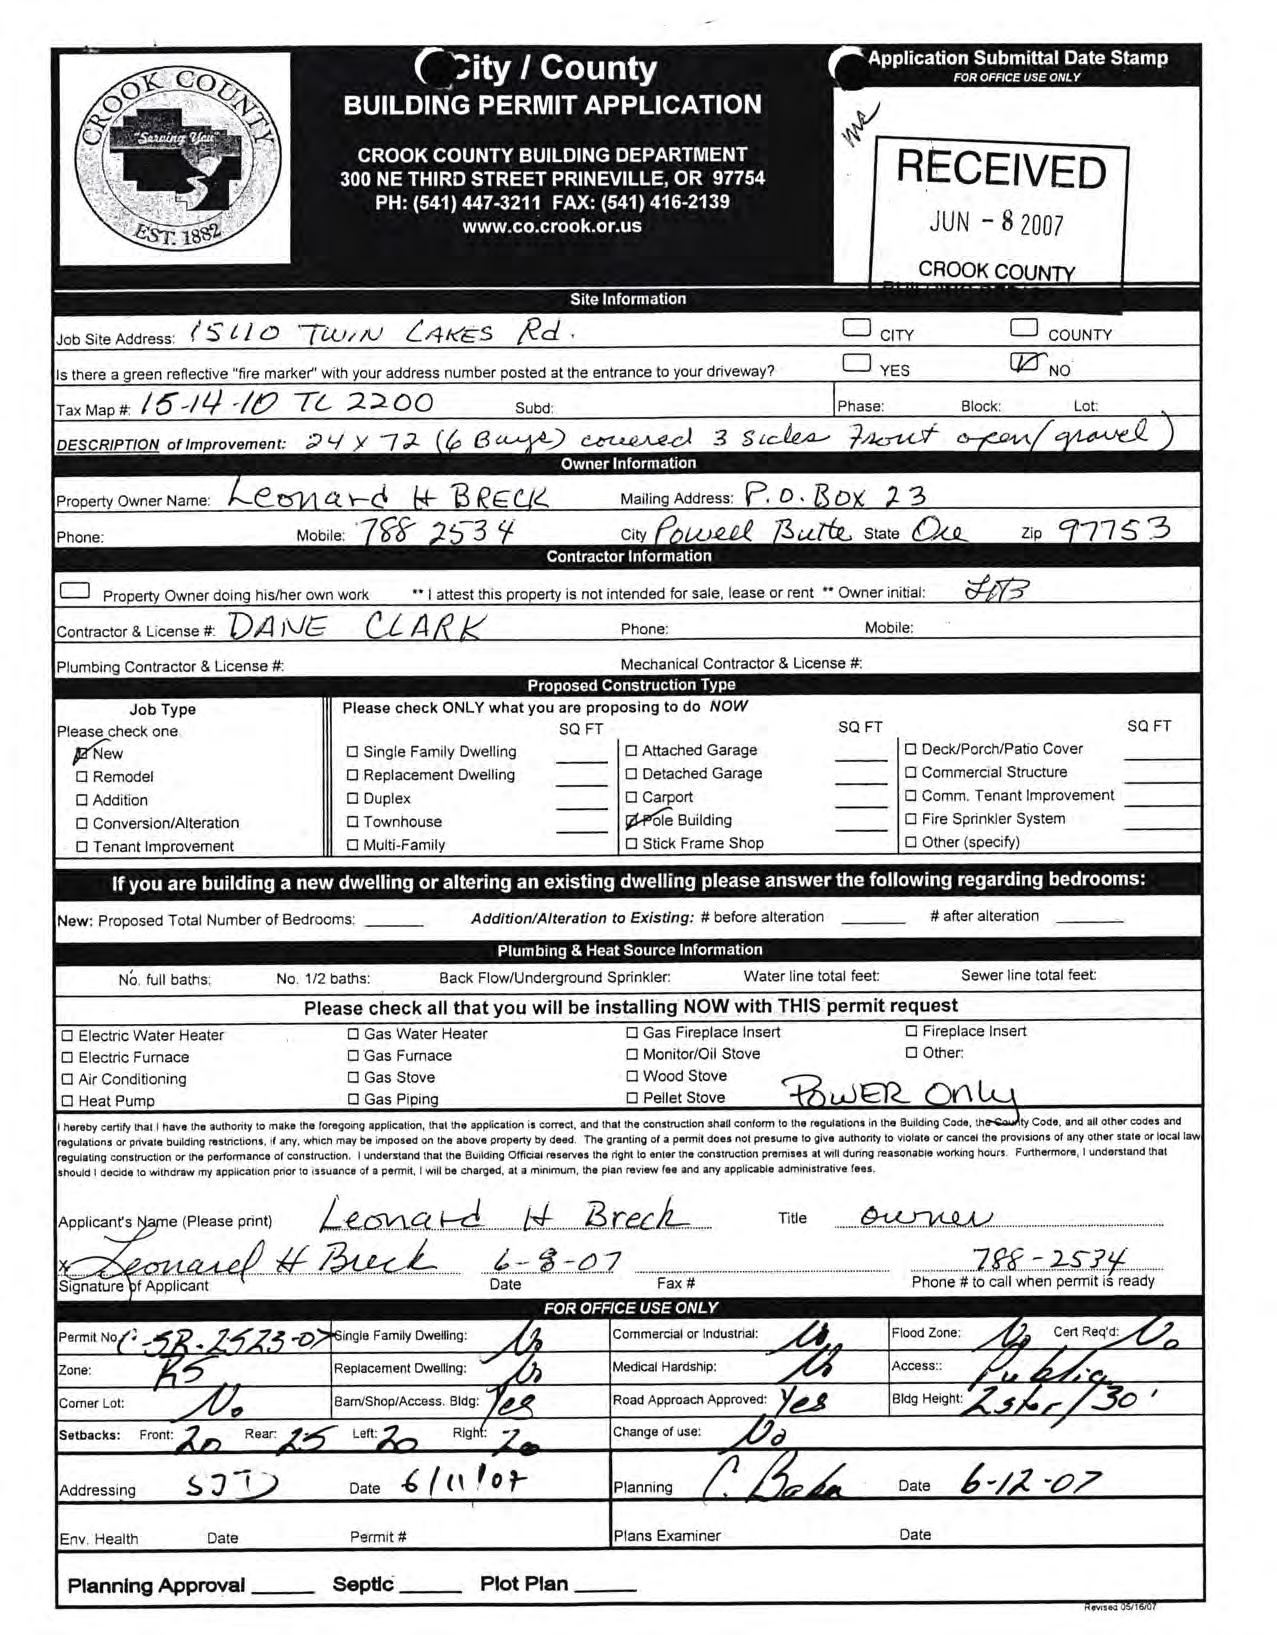 CROOK COUNTY
"Serving You"
EST. 1882
City / County
BUILDING PERMIT APPLICATION
CROOK COUNTY BUILDING DEPARTMENT
300 NE THIRD STREET PRINEVILLE, OR 97754
PH: (541) 447-3211 FAX: (541) 416-2139
www.co.crook.or.us
Application Submittal Date Stamp
FOR OFFICE USE ONLY
RECEIVED
JUN - 8 2007
CROOK COUNTY
Site Information
Job Site Address: 15110 TWIN LAKES Rd. CITY COUNTY
Is there a green reflective "fire marker" with your address number posted at the entrance to your driveway? YES NO
Tax Map #: 15-14-10 TL 2200 Subd: Phase: Block: Lot:
DESCRIPTION of Improvement: 24 X 72 (6 Bays) covered 3 Sides Front open (gravel)
Owner Information
Property Owner Name: Leonard H BRECK Mailing Address: P.O. BOX 23
Phone: Mobile: 788 2534 City Powell Butte State Ore Zip 97753
Contractor Information
Property Owner doing his/her own work ** I attest this property is not intended for sale, lease or rent ** Owner initial: LHB
Contractor & License #: DANE CLARK Phone: Mobile:
Plumbing Contractor & License #: Mechanical Contractor & License #:
Proposed Construction Type
Job Type Please check ONLY what you are proposing to do NOW
Please check one SQ FT SQ FT SQ FT
New Single Family Dwelling Attached Garage Deck/Porch/Patio Cover
Remodel Replacement Dwelling Detached Garage Commercial Structure
Addition Duplex Carport Comm. Tenant Improvement
Conversion/Alteration Townhouse Pole Building Fire Sprinkler System
Tenant Improvement Multi-Family Stick Frame Shop Other (specify)
If you are building a new dwelling or altering an existing dwelling please answer the following regarding bedrooms:
New: Proposed Total Number of Bedrooms: Addition/Alteration to Existing: # before alteration # after alteration
Plumbing & Heat Source Information
No. full baths: No. 1/2 baths: Back Flow/Underground Sprinkler: Water line total feet: Sewer line total feet:
Please check all that you will be installing NOW with THIS permit request
Electric Water Heater Gas Water Heater Gas Fireplace Insert Fireplace Insert
Electric Furnace Gas Furnace Monitor/Oil Stove Other:
Air Conditioning Gas Stove Wood Stove
Heat Pump Gas Piping Pellet Stove POWER Only
I hereby certify that I have the authority to make the foregoing application, that the application is correct, and that the construction shall conform to the regulations in the Building Code, the County Code, and all other codes and
regulations or private building restrictions, if any, which may be imposed on the above property by deed. The granting of a permit does not presume to give authority to violate or cancel the provisions of any other state or local law
regulating construction or the performance of construction. I understand that the Building Official reserves the right to enter the construction premises at will during reasonable working hours. Furthermore, I understand that
should I decide to withdraw my application prior to issuance of a permit, I will be charged, at a minimum, the plan review fee and any applicable administrative fees.
Applicant's Name (Please print) Leonard H Breck Title owner
x Leonard H Breck 6-8-07 788-2534
Signature of Applicant Date Fax # Phone # to call when permit is ready
FOR OFFICE USE ONLY
Permit No C-SR-2523-07 Single Family Dwelling: No Commercial or Industrial: No Flood Zone: No Cert Req'd: No
Zone: R5 Replacement Dwelling: No Medical Hardship: No Access:: Public
Corner Lot: No Barn/Shop/Access. Bldg: Yes Road Approach Approved: Yes Bldg Height: 2 stor/30'
Setbacks: Front: 20 Rear: 25 Left: 20 Right: 20 Change of use: No
Addressing SJD Date 6/11/07 Planning Date 6-12-07
Env. Health Date Permit # Plans Examiner Date
Planning Approval Septic Plot Plan
Revised 05/16/07